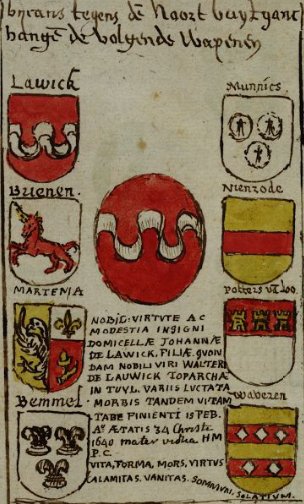 tegens de Noort
hange de volgende Wapenen
Lawick
Munnics
Buenen.
Nienrode
MARTENIA
Potters vā Loo.
Bemmel.
Waberen
NOBIL: VIRTUTE AC
MODESTIA INSIGNI
DOMICELLÆ JOHANNÆ
DE LAWICK, FILIÆ. QUON
DAM NOBILI VIRI WALTERI
DE LAUWICK TOPARCHÆ
IN TUYL. VARIIS LUCTATA
MORBIS TANDEM VITAM
TABE FINIENTI 15 FEB.
Aº ÆTATIS 34 Christi
1640 mater vidua HM
P.C.
VITA, FORMA, MORS, VIRTUS
CALAMITAS. VANITAS. SOMNIUM. SOLATIUM.